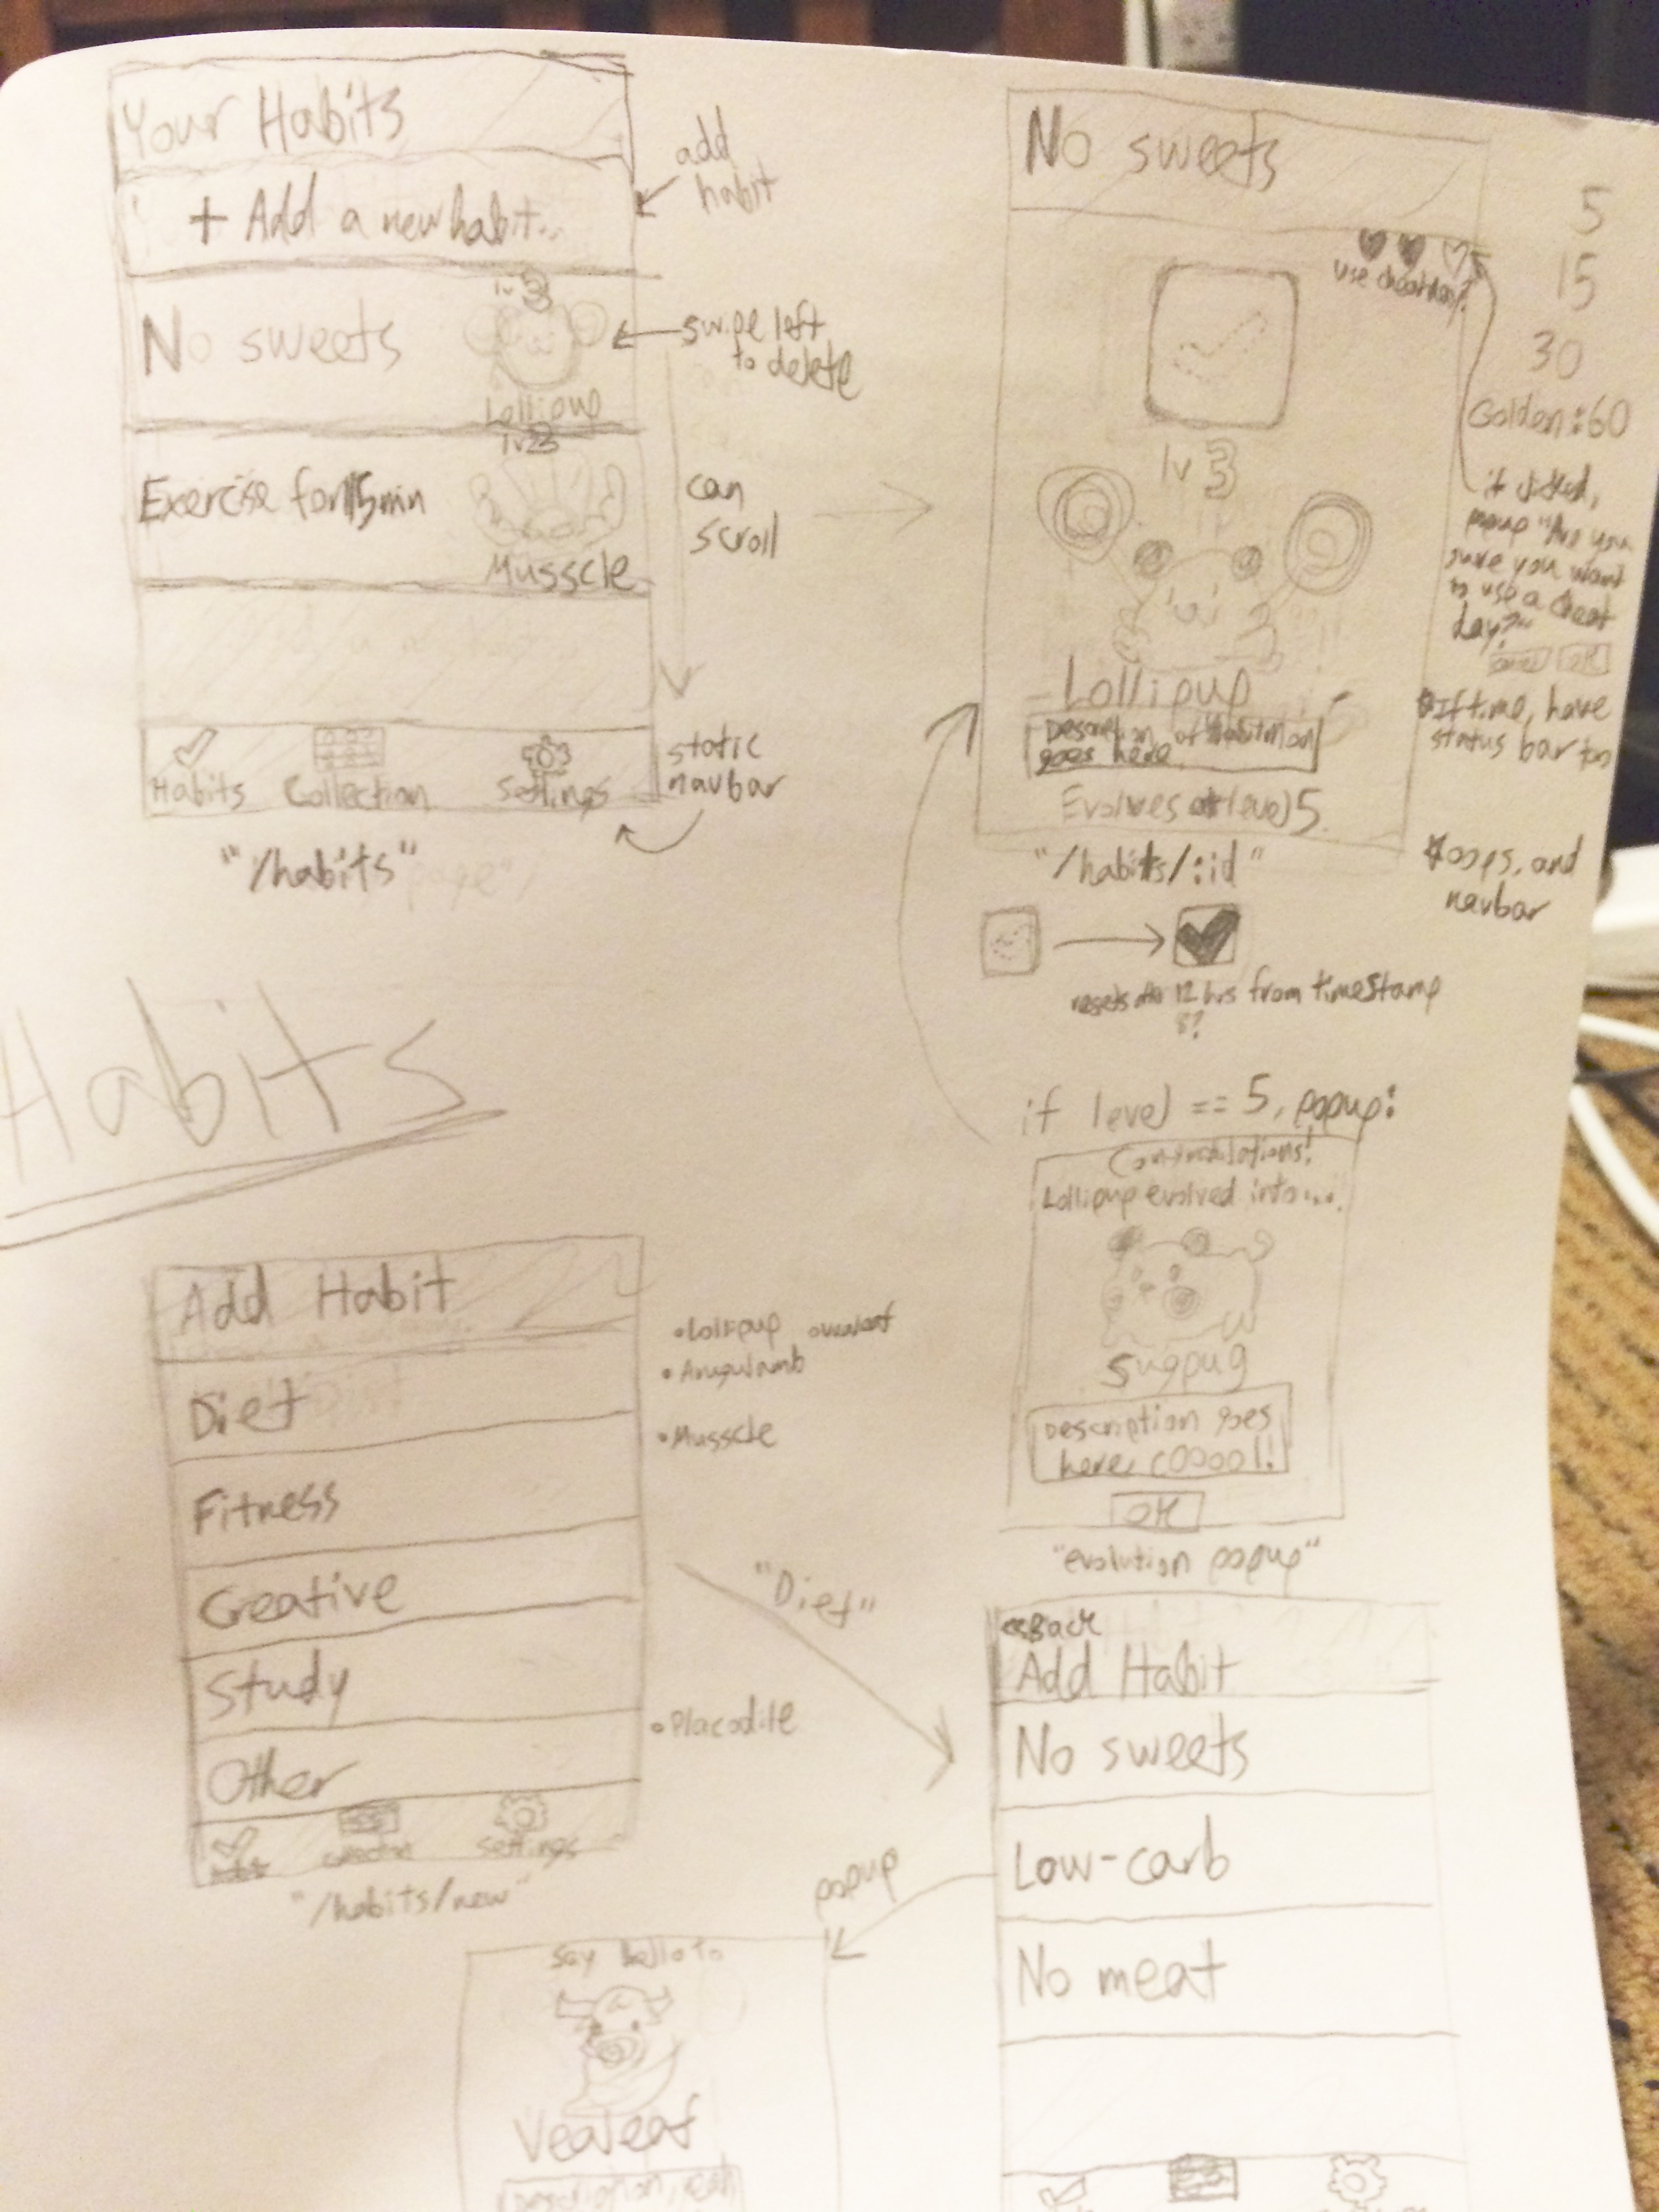 Your Habits
+ Add a new habit...
add
habit
lv 3
No sweets
Lollipup
swipe left
to delete
Exercise for 15min
Musscle
can
scroll
Habits
Collection
Settings
static
navbar
"/habits"
page
No sweets
use cheatday?
lv 3
Lollipup
Description of Habitmon
goes here
Evolves at level 5
"/habits/:id"
5
15
30
Golden: 60
if clicked,
popup "Are you
sure you want
to use a cheat
day?"
OK
*If time, have
status bar too
*oops, and
navbar
resets after 12 hrs from timestamp
8?
Habits
if level == 5, popup:
Congratulations!
Lollipup evolved into...
Sugpug
Description goes
here, cooool!
OK
"evolution popup"
Add Habit
Diet
Fitness
Creative
Study
Other
Collection
Settings
"/habits/new"
•Lollipup
•Musscle
•Placodile
"Diet"
<<Back
Add Habit
No sweets
Low-carb
No meat
popup
say hello to
Vealeaf
Description, yeah